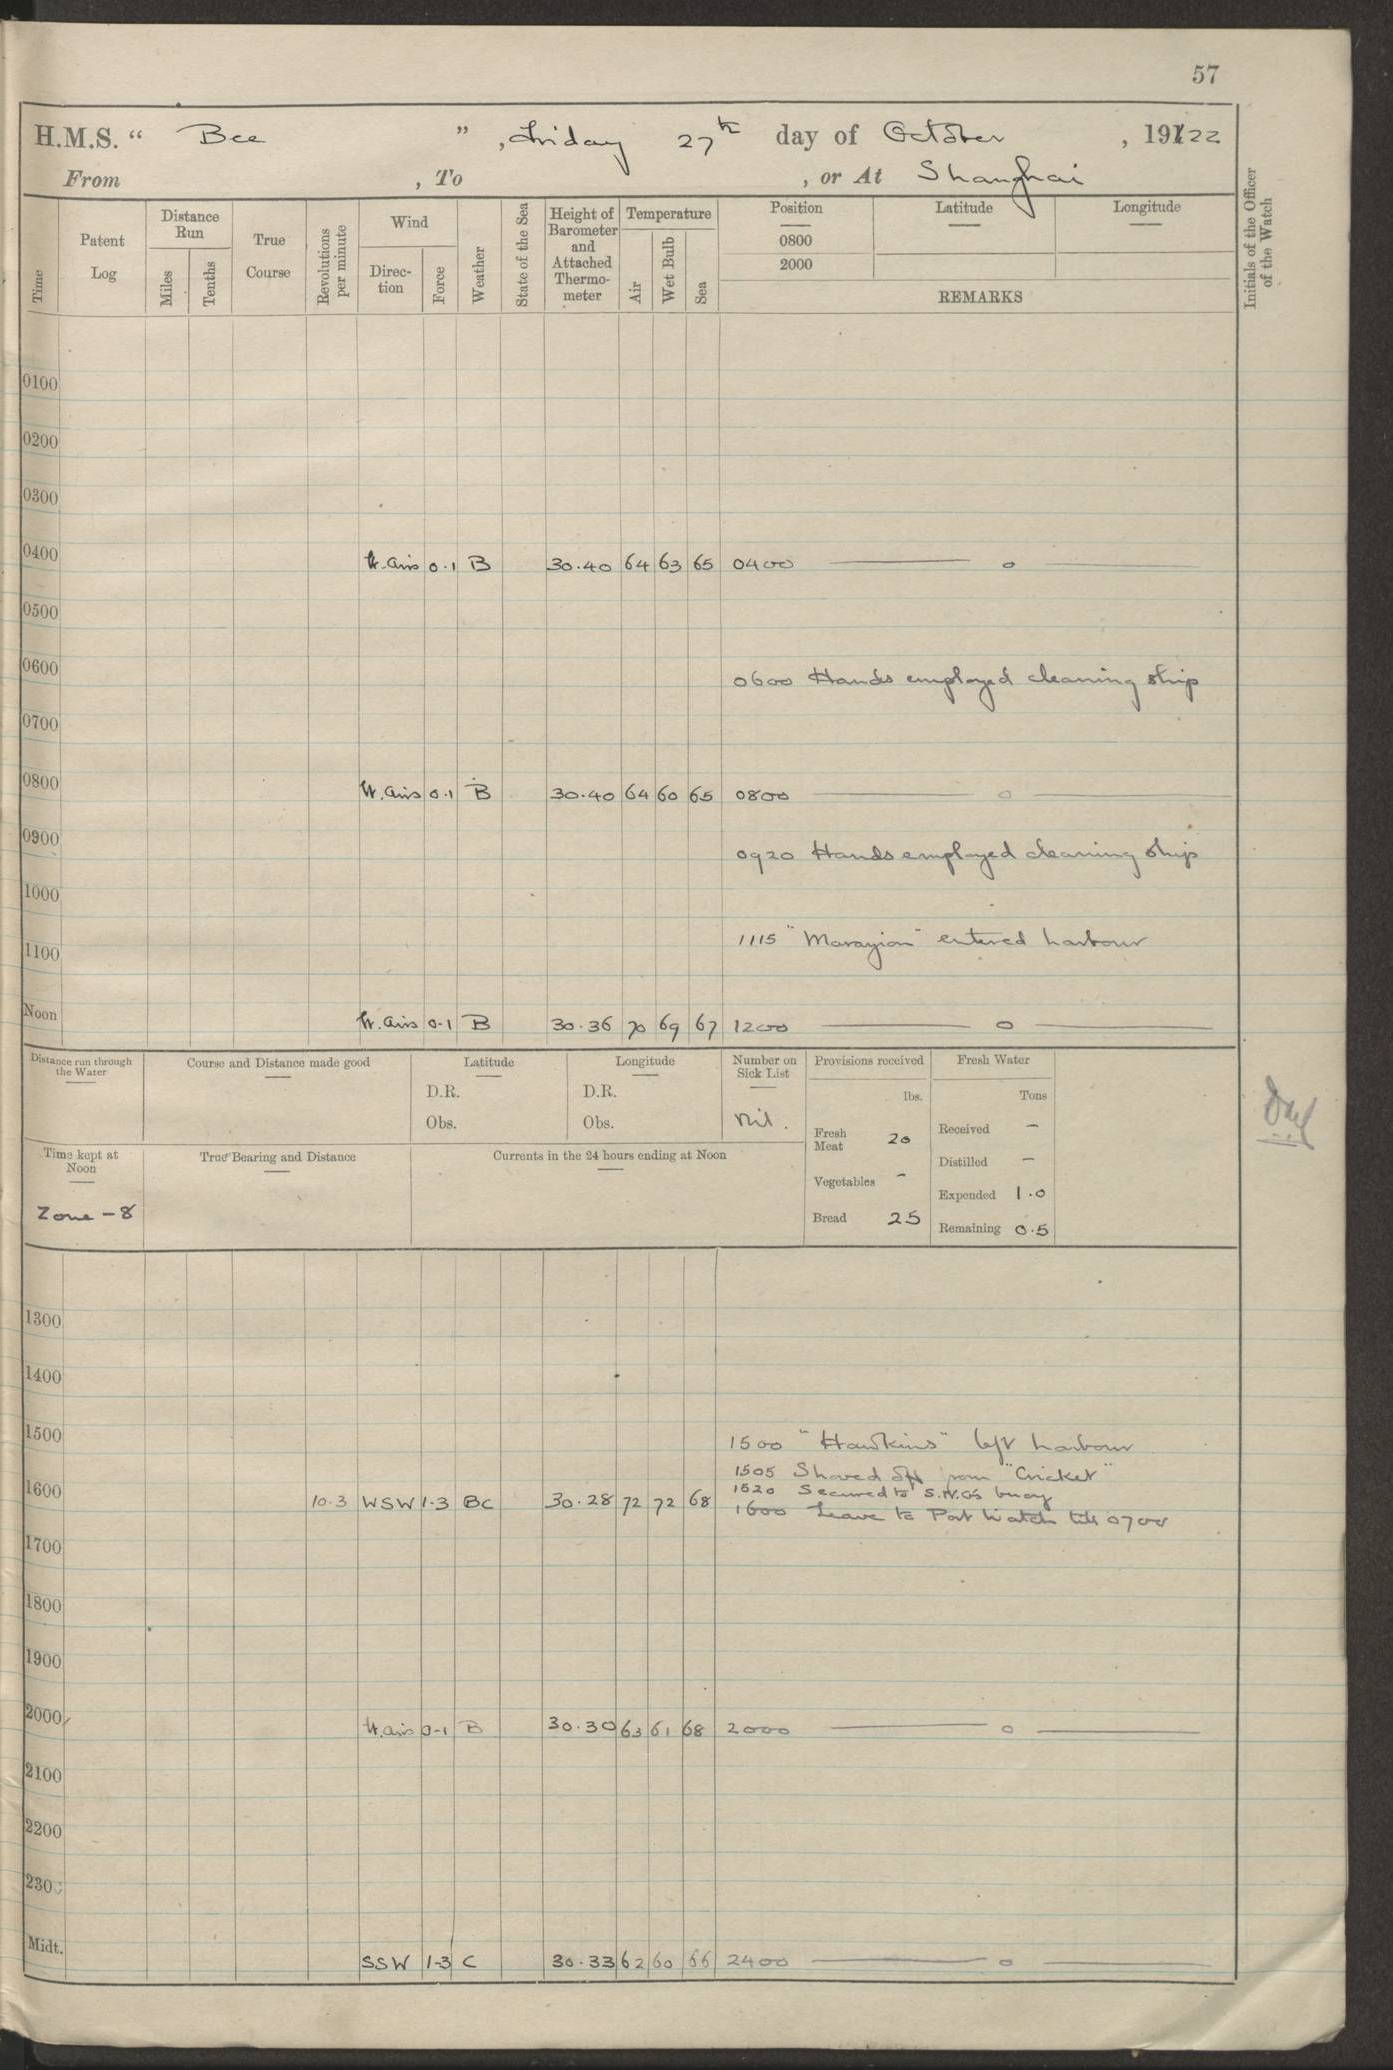 57
H.M.S. " Bee ", Friday 27th day of October, 191 22
From , To , or At Shanghai
Time
Patent Log
Distance Run
Miles
Tenths
True Course
Revolutions per minute
Wind
Direc-tion
Force
Weather
State of the Sea
Height of Barometer and Attached Thermo-meter
Temperature
Air
Wet Bulb
Sea
Position
0800
2000
Latitude
Longitude
REMARKS
Initials of the Officer of the Watch
0100
0200
0300
0400 lt. airs 0.1 B 30.40 64 63 65 0400 — o —
0500
0600
0600 Hands employed cleaning ship
0700
0800 lt. airs 0.1 B 30.40 64 60 65 0800 — o —
0900
0920 Hands employed cleaning ship
1000
1100
1115 "Marazion" entered harbour
Noon lt. airs 0-1 B 30.36 70 69 67 1200 — o —
Distance run through the Water
Course and Distance made good
Latitude
D.R.
Obs.
Longitude
D.R.
Obs.
Number on Sick List
Nil.
Provisions received
lbs.
Fresh Meat 20
Vegetables -
Bread 25
Fresh Water
Tons
Received -
Distilled -
Expended 1.0
Remaining 0.5
Time kept at Noon
Zone -8
True Bearing and Distance
Currents in the 24 hours ending at Noon
1300
1400
1500
1500 "Hawkins" left harbour
1505 Shoved off from "Cricket"
1520 Secured to S.N.O's buoy
1600 10.3 WSW 1-3 BC 30.28 72 72 68
1600 Leave to Port Watch till 0700
1700
1800
1900
2000 lt. airs 0-1 B 30.30 63 61 68 2000 — o —
2100
2200
2300
Midt. SSW 1-3 C 30.33 62 60 66 2400 — o —